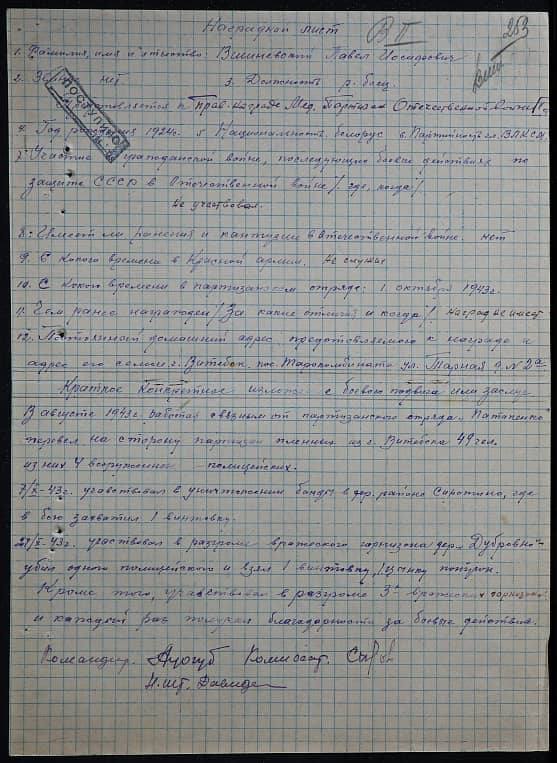 Наградной лист
В II
253
1. Фамилия, имя и отчество: Вишневский Павел Иосифович
2. Звание нет 3. Должность р. боец.
ПОСТУПИЛО
Представляется к Прав. награде Мед. Партизан Отечественной войны II
4. Год рождения 1924г. 5 Национальность белорус 6. Партийность чл. ВЛКСМ
7. Участие в гражданской войне, последующих боевых действиях по
защите СССР в Отечественной войне /где, когда/
Не участвовал.
8. Имеет ли ранения и контузии в Отечественной войне. нет
9. С какого времени в Красной армии. Не служил
10. С какого времени в партизанском отряде: 1 октября 1943г.
11. Чем ранее награжден /За какие отличия и когда/. наград не имеет
12. Постоянный домашний адрес представляемого к награде и
адрес его семьи: г. Витебск, пос. ул. Тарная д. № 2а
Краткое конкретное изложение боевого подвига или заслуг
В августе 1943г. работая связным от партизанского отряда. Потапенко
перевел на сторону партизан пленных из г. Витебска 49 чел.
из них 4 вооруженных полицейских.
7/X-43г. участвовал в уничтожении банды в дер. района Сиротино, где
в бою захватил 1 винтовку.
27/X-43г. участвовал в разгроме вражеского гарнизона дер. Дубровно
убил одного полицейского и взял 1 винтовку, 1 цинку патрон.
Кроме того, участвовал в разгроме 3х вражеских гарнизонов
и каждый раз получал благодарности за боевые действия.
Командир. Комиссар.
Н.шт.